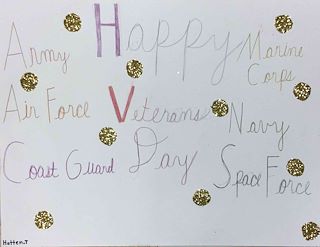 Happy
Army
Marine
Corps
Air Force
Veterans
Navy
Coast Guard
Day
Space Force
Hatten.T